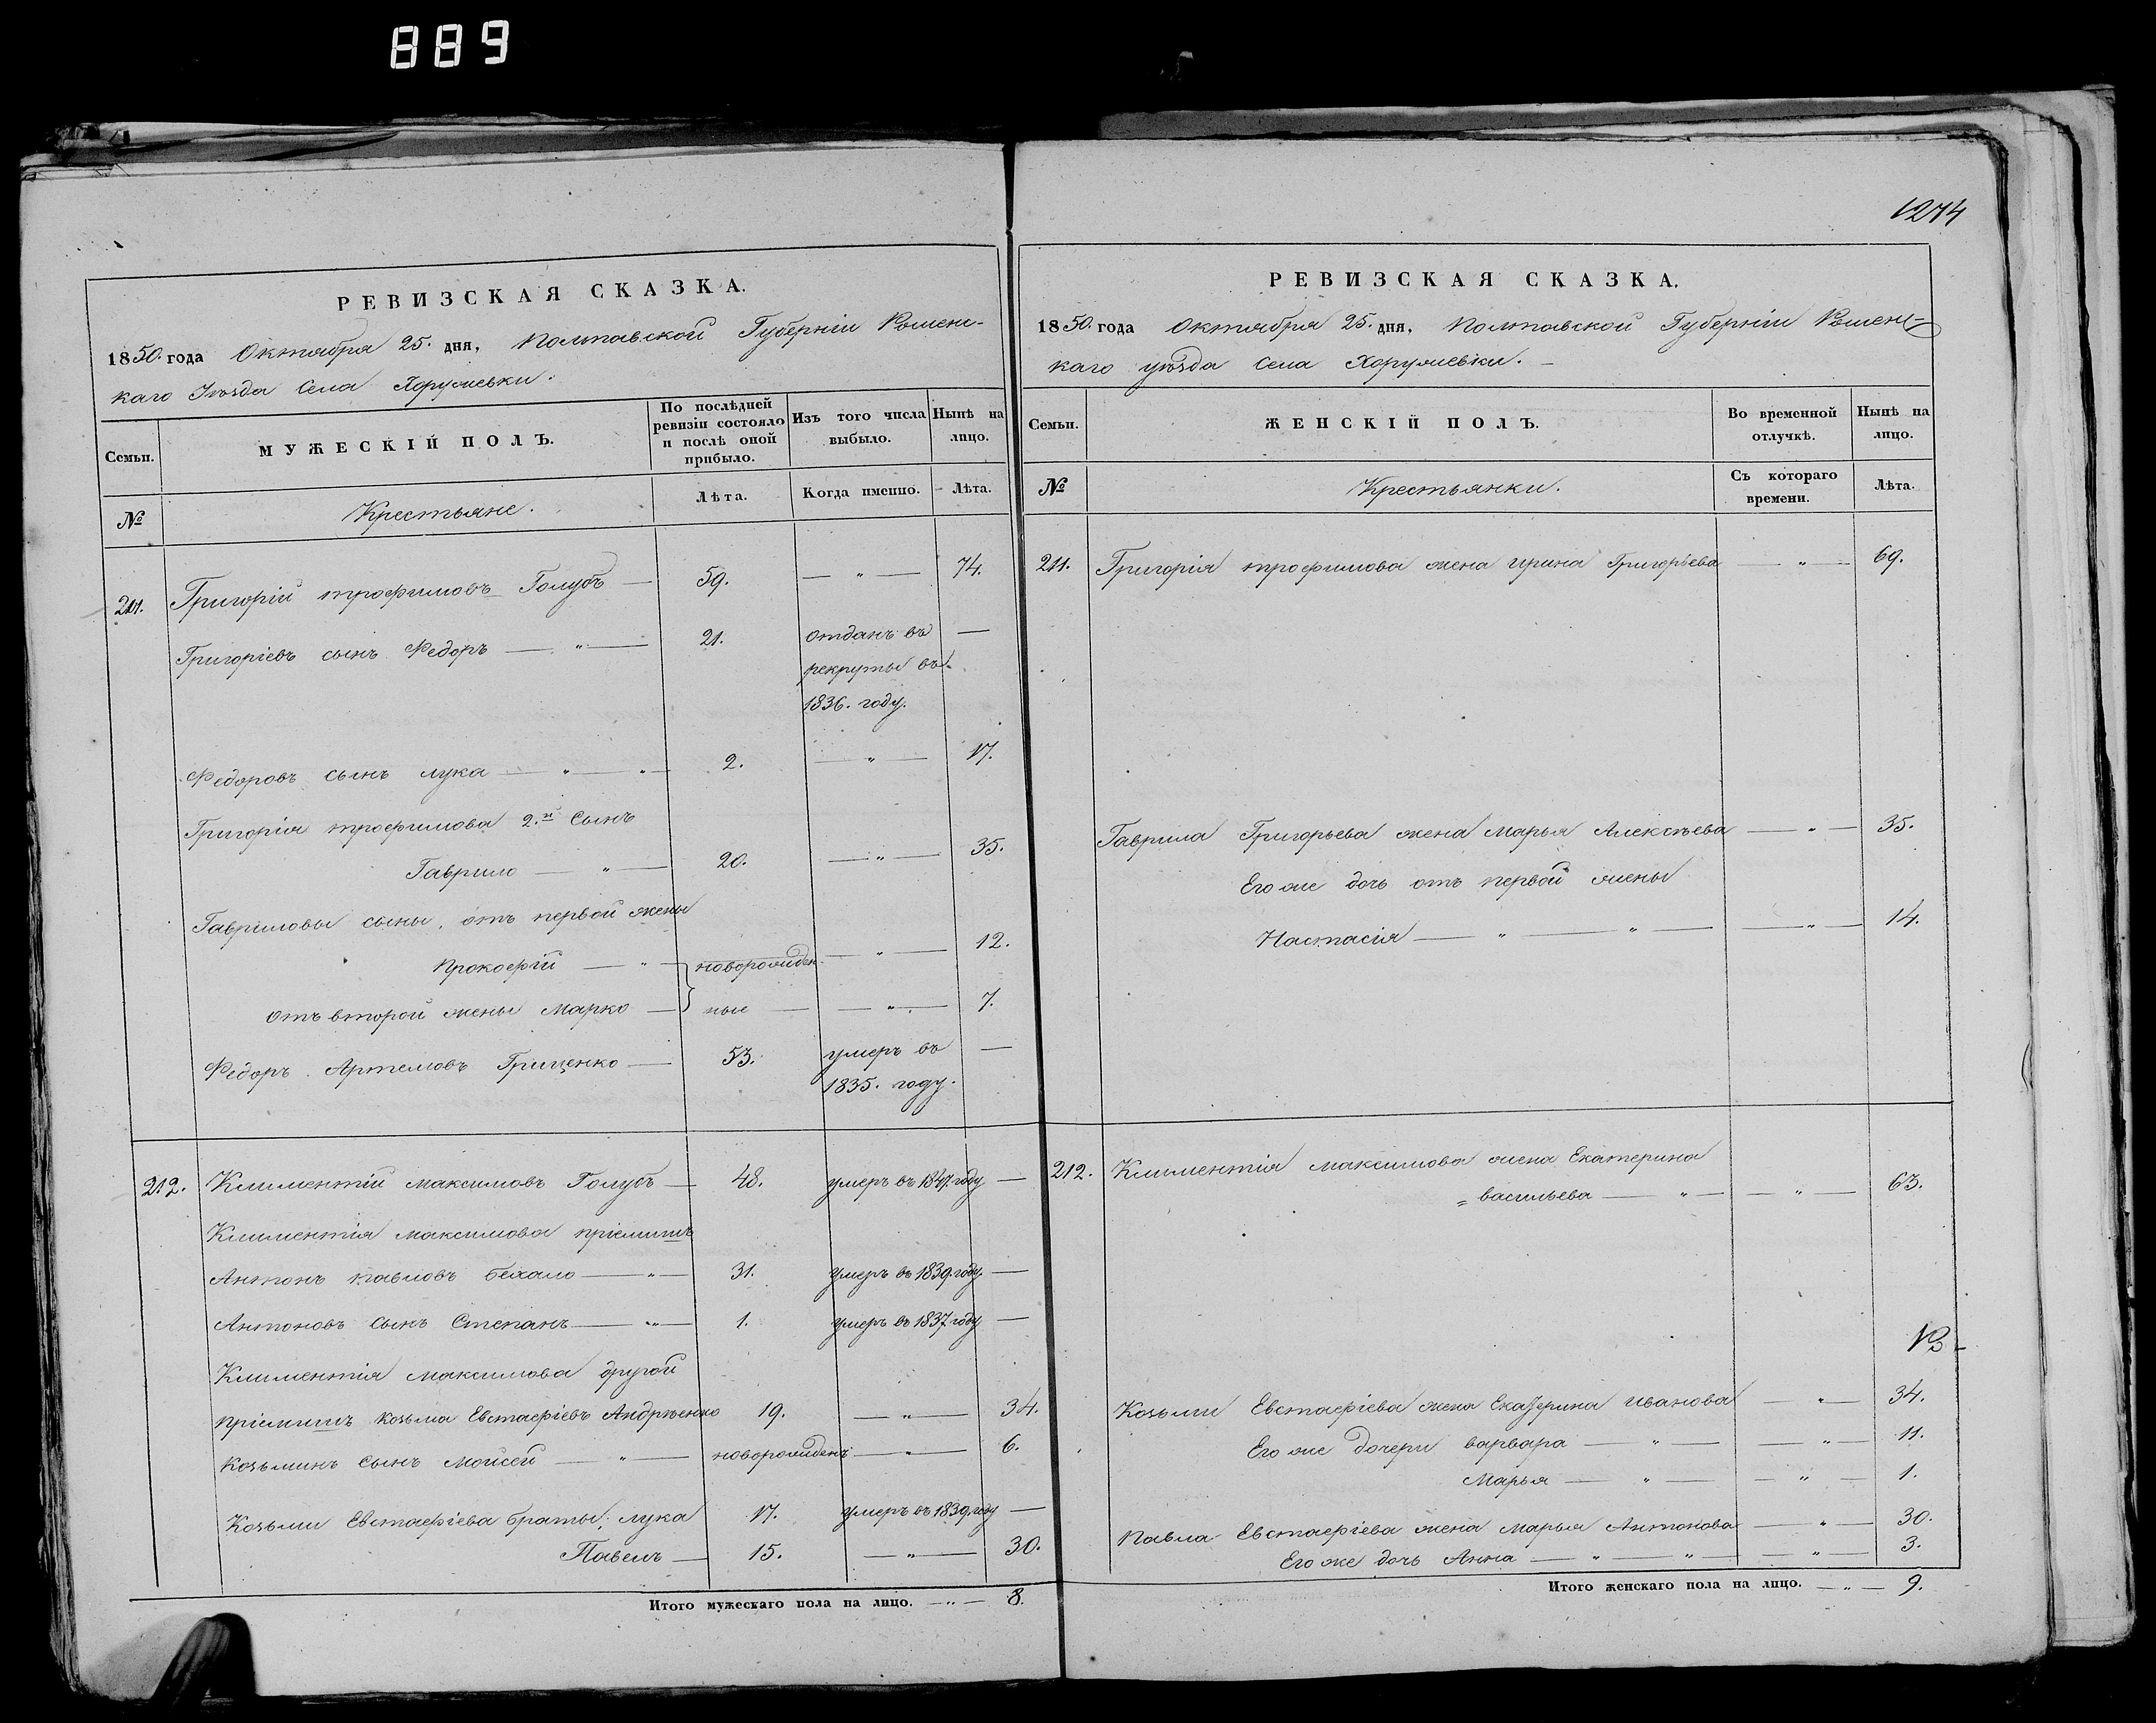 889
1274
РЕВИЗСКАЯ СКАЗКА.
1850. года Октября 25. дня, Полтавской Губерніи Ромен-
каго Уѣзда Села Хоружевки.
Семьи.
МУЖЕСКІЙ ПОЛЪ.
По послѣдней ревизіи состояло и послѣ оной прибыло.
Изъ того числа выбыло.
Нынѣ на лицо.
№
Крестьяне.
Лѣта.
Когда именно.
Лѣта.
211. Григорій трофимовъ Голубъ — 59. — " — 74.
Григоріевъ сынъ Федоръ — " — 21. отданъ въ —
рекруты въ
1836. году.
Федоровъ сынъ лука — " — " — 2. — " — 17.
Григорія трофимова 2.й Сынъ
Гаврило — " — 20. — " — 35.
Гавриловы сыны, отъ первой жены
Прокофій — " — новорожден — " — 12.
отъ второй жены Марко — ные — — " — 7.
Федоръ Артемовъ Гриценко — 53. умеръ въ —
1835. году.
212. Климентій Максимовъ Голубъ — 48. умеръ въ 1847 году —
Климентія Максимова пріемышъ
Антонъ павловъ Бехало — " — 31. умеръ въ 1839. году. —
Антоновъ сынъ Степанъ — " — 1. умеръ въ 1837 году —
Климентія Максимова другой
пріемышъ Козьма Евстафіевъ Андрѣенко 19. — " — 34.
Козьминъ сынъ Моисей — " — новорожденъ — " — 6.
Козьми Евстафіева браты: лука 17. умеръ въ 1839. году —
Павелъ — 15. — " — 30.
Итого мужескаго пола на лицо. — " — 8.
РЕВИЗСКАЯ СКАЗКА.
1850. года Октября 25. дня, Полтавской Губерніи Ромен-
каго уѣзда Села Хоружевки. —
Семьи.
ЖЕНСКІЙ ПОЛЪ.
Во временной отлучкѣ.
Нынѣ на лицо.
№
Крестьянки.
Съ котораго времени.
Лѣта.
211. Григорія трофимова жена ирина Григорьева — " — 69.
Гаврила Григорьева жена Марья Алексѣева — " — 35.
Его же дочь отъ первой жены
Настасія — " — " — — " — 14.
212. Климентія Максимова жена Екатерина
= васильева — " — — " — 63.
Козьми Евстафіева жена Екатерина иванова — " — 34.
Его же дочери варвара — " — — " — 11.
Марья — " — — " — 1.
Павла Евстафіева жена Марья Антонова — " — 30.
Его же дочь Анна — " — " — — " — 3.
Итого женскаго пола на лицо. — " — 9.